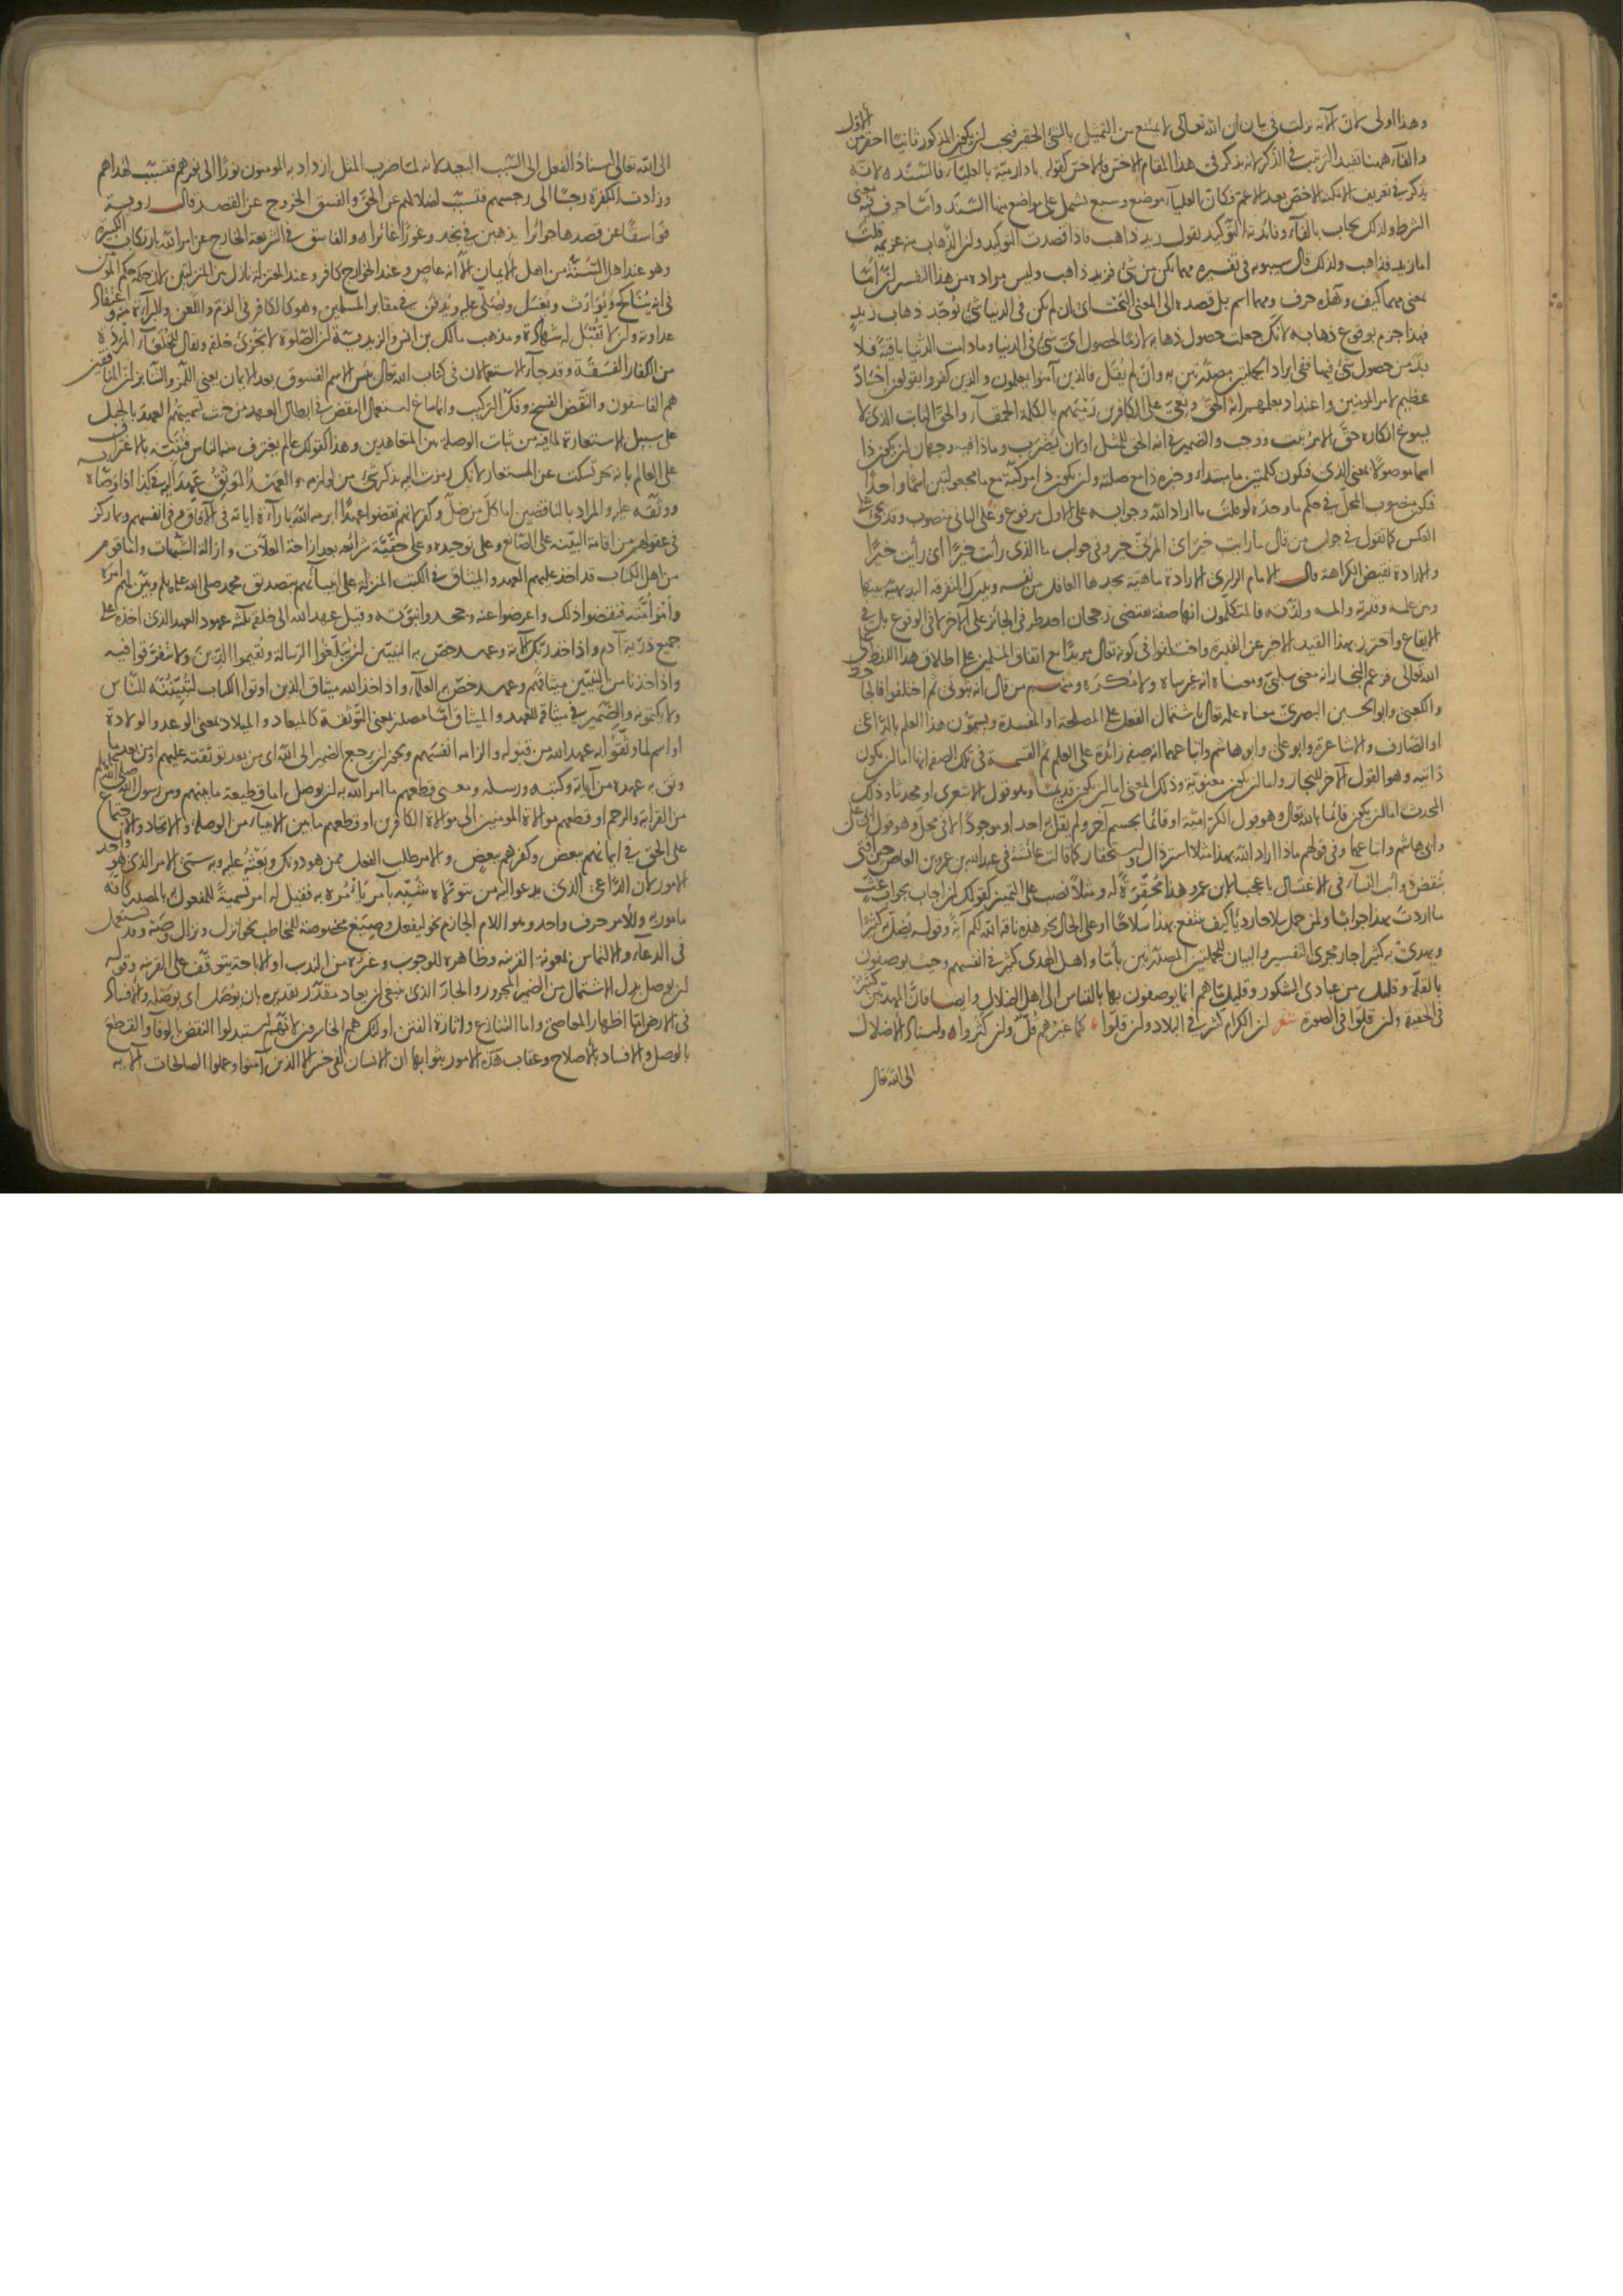 وهذا اولى لان الآية نزلت في بيان ان الله تعالى لا يمتنع من التمثيل بالشئ الحقير فيجب ان يكون المذكور ثانيا احقر من الاول
والفاء ههنا تفيد الترتيب في الذكر لانه يذكر في هذا المقام الاخس فالاخس كقوله يا دار مية بالعلياء فالسند لانه
يذكر في تعريف الامكنة الاخص بعد الاعم فكان العلياء موضع وسيع يشمل على مواضع منها السند واما حرف فيه معنى
الشرط ولذلك يجاب بالفاء وفائدته التوكيد تقول زيد ذاهب فاذا قصدت التوكيد وان الذهاب منه عزيمة قلت
اما زيد فذاهب ولذلك قال سيبويه في تفسيره مهما يكن من شئ فزيد ذاهب وليس مراده من هذا التفسير ان اما
بمعنى مهما كيف وهذه حرف ومهما اسم بل قصده الى المعنى البحت اي ان لم يكن في الدنيا شئ يوجد ذهاب زيد
فهذا جزم بوقوع ذهابه لانك جعلت حصول ذهابه لازما لحصول اي شئ في الدنيا وما دامت الدنيا باقية فلا
بد من حصول شئ فيها ففي ايراد الجملتين مصدرتين به وان لم يقل فالذين آمنوا يعلمون والذين كفروا يقولون احماد
عظيم لامر المؤمنين واعتداد بعلمهم انه الحق ونعي على الكافرين رميهم بالكلمة الحمقاء والحق الثابت الذي لا
يسوغ انكاره حق الامر ثبت ووجب والضمير في انه الحق للمثل او لان يضرب وماذا فيه وجهان ان يكون ذا
اسما موصولا بمعنى الذي فيكون كلمتين ما مبتداء وخبره ذا مع صلته وان يكون ذا مركبة مع ما مجعولتين اسما واحدا
فيكون منصوب المحل في حكم ما وحده لو قلت ما اراد الله وجوابه على الاول مرفوع وعلى الثاني منصوب وقد يجئ على
العكس كما تقول في جواب من قال ما رايت خير اي المرئي خير وفي جواب ما الذي رأيت خيرا اي رأيت خيرا
والارادة نقيض الكراهة قال الامام الرازي الارادة ماهية يجدها العاقل من نفسه ويدرك التفرقة البديهية بينها
وبين علمه وقدرته والمه ولذته فالمتكلمون انها صفة تقتضي رجحان احد طرفي الجائز على الآخر لا في الوقوع بل في
الايقاع واحترز بهذا القيد الاخير عن القدرة واختلفوا في كونه تعالى مريدا مع اتفاق المسلمين على اطلاق هذا اللفظ على
الله تعالى فزعم النجار انه معنى سلبي ومعناه انه غير ساه ولا مكره ومنهم من قال انه ثبوتي ثم اختلفوا فالجاحظ
والكعبي وابو الحسين البصري معناه علمه تعالى باشتمال الفعل على المصلحة او المفسدة ويسمون هذا العلم بالداعي
او الصارف والاشاعرة وابو علي وابو هاشم واتباعهما انه صفة زائدة على العلم ثم القسمة في تلك الصفة انها اما ان يكون
ذاتية وهو القول الآخر للنجار واما ان يكون معنوية وذلك المعنى اما ان يكون قديما وهو قول الاشعري او محدثا وذلك
المحدث اما ان يكون قائما بالله تعالى وهو قول الكرامية او قائما بجسم آخر ولم يقل به احد او موجودا لا في محل وهو قول ابي علي
وابي هاشم واتباعهما وفي قولهم ماذا اراد الله بهذا مثلا استرذال واستحقار كما قالت عائشة في عبد الله بن عمرو بن العاص حين افتى
بنقض ذوائب النساء في الاغتسال يا عجبا لابن عمرو هذا محقرة له ومثلا نصب على التمييز كقولك لمن اجاب بجواب غث
ما اردت بهذا جوابا ولمن حمل سلاحا رديا كيف ينتفع بهذا سلاحا او على الحال نحو هذه ناقة الله لكم آية وقوله يضل به كثيرا
ويهدي به كثيرا جار مجرى التفسير والبيان للجملتين المصدرتين بأما واهل الهدى كثير في انفسهم وحيث يوصفون
بالقلة وقليل من عبادي الشكور وقليل ما هم انما يوصفون بها بالقياس الى اهل الضلال وايضا فان المهديين كثير
في الحقيقة وان قلوا في الصورة شعر ان الكرام كثير في البلاد وان قلوا كما غيرهم قل وان كثروا ه واسناد الاضلال
الى الله تعالى
الى الله تعالى اسناد الفعل الى السبب البعيد لانه لما ضرب المثل ازداد به المومنون نورا الى نورهم فتسبب لهداهم
وزادت الكفرة رجسا الى رجسهم فتسبب لضلالهم عن الحق والفسق الخروج عن القصد قال روبة
فواسقا عن قصدها جوائرا يذهبن في نجد وغورا غائرا ه والفاسق في الشريعة الخارج عن امر الله بارتكاب الكبيرة
وهو عند اهل السنة من اهل الايمان الا انه عاص وعند الخوارج كافر وعند المعتزلة نازل بين المنزلتين لان حكمه حكم المؤمن
في انه يناكح ويوارث ويغسل ويصلى عليه ويدفن في مقابر المسلمين وهو كالكافر في الذم واللعن والبراءة منه واعتقاد
عداوته وان لا تقبل له شهادة ومذهب مالك بن انس والزيدية ان الصلوة لا تجزئ خلفه ويقال للخلفاء المردة
من الكفار الفسقة وقد جاء الاستعمالان في كتاب الله تعالى بئس الاسم الفسوق بعد الايمان يعني اللمز والتنابز ان المنافقين
هم الفاسقون والنقض الفسخ وفك التركيب وانما ساغ استعمال النقض في ابطال العهد من حيث تسميتهم العهد بالحبل
على سبيل الاستعارة لما فيه من ثبات الوصلة بين المتعاهدين وهذا كقولك عالم يغترف منه الناس فنبهت بالاغتراف
على العالم بانه بحر تسكت عن المستعار لانك رمزت اليه بذكر شئ من لوازمه والعهد الموثق عهد اليه في كذا اذا وصاه به
ووثقه عليه والمراد بالناقضين اما كل من ضل وكفر لانهم نقضوا عهدا ابرمه الله باراءة اياته في الآفاق وفي انفسهم وبما ركز
في عقولهم من اقامة البينة على الصانع وعلى توحيده وعلى حقية شرائعه بعد ازاحة العلات وازالة الشبهات واما قوم
من اهل الكتاب قد اخذ عليهم العهد والميثاق في الكتب المنزلة على انبيائهم بتصديق محمد صلى الله عليه وسلم وبين لهم امره
وامر أمته فنقضوا ذلك واعرضوا عنه وجحدوا نبوته وقيل عهد الله الى خلقه ثلثة عهود العهد الذي اخذه على
جميع ذرية آدم واذ اخذ ربك الآية وعهد خص به النبيين ان يبلغوا الرسالة ويقيموا الدين ولا يتفرقوا فيه
واذ اخذنا من النبيين ميثاقهم وعهد خص به العلماء واذ اخذ الله ميثاق الذين اوتوا الكتاب لتبيننه للناس
ولا يكتمونه والضمير في ميثاقه للعهد والميثاق اما مصدر بمعنى التوثقة كالميعاد والميلاد بمعنى الوعد والولادة
او اسم لما وثقوا به عهد الله من قبوله والزامه انفسهم ويجوز ان يرجع الضمير الى الله اي من بعد توثقته عليهم او من بعد ما
وثق به عهده من آياته وكتبه ورسله ومعنى قطعهم ما امر الله به ان يوصل اما قطيعة ما بينهم وبين رسول الله صلى الله عليه وسلم
من القرابة والرحم او قطعهم موالاة المومنين الى موالاة الكافرين او قطعهم ما بين الانبياء من الوصلة والاتحاد والاجتماع
على الحق في ايمانهم ببعض وكفرهم ببعض والامر طلب الفعل ممن هو دونك وبعثه عليه وبه سمي الامر الذي هو واحد
الامور لان الداعي الذي يدعو اليه من يتولاه شبه بآمر يأمره به فقيل له امر تسمية للمفعول به بالمصدر كانه
مامور به وللامر حرف واحد وهو اللام الجازم نحو ليفعل وصيغ مخصوصة للمخاطب نحو انزل ونزال وصه وقد تستعمل
في الدعاء والالتماس بمعونة القرينة وظاهره للوجوب وغيره من الندب او الاباحة يتوقف على القرينة وقوله
ان يوصل بدل الاشتمال من الضمير المجرور والجار الذي ينبغي ان يعاد مقدر تقديره بان يوصل اي بوصله والافساد
في الارض اما اظهار المعاصي واما التنازع واثارة الفتن اولئك هم الخاسرون لانهم استبدلوا النقض بالوفاء والقطع
بالوصل والافساد بالاصلاح وعقاب هذه الامور بثوابها ان الانسان لفي خسر الا الذين آمنوا وعملوا الصالحات الآية